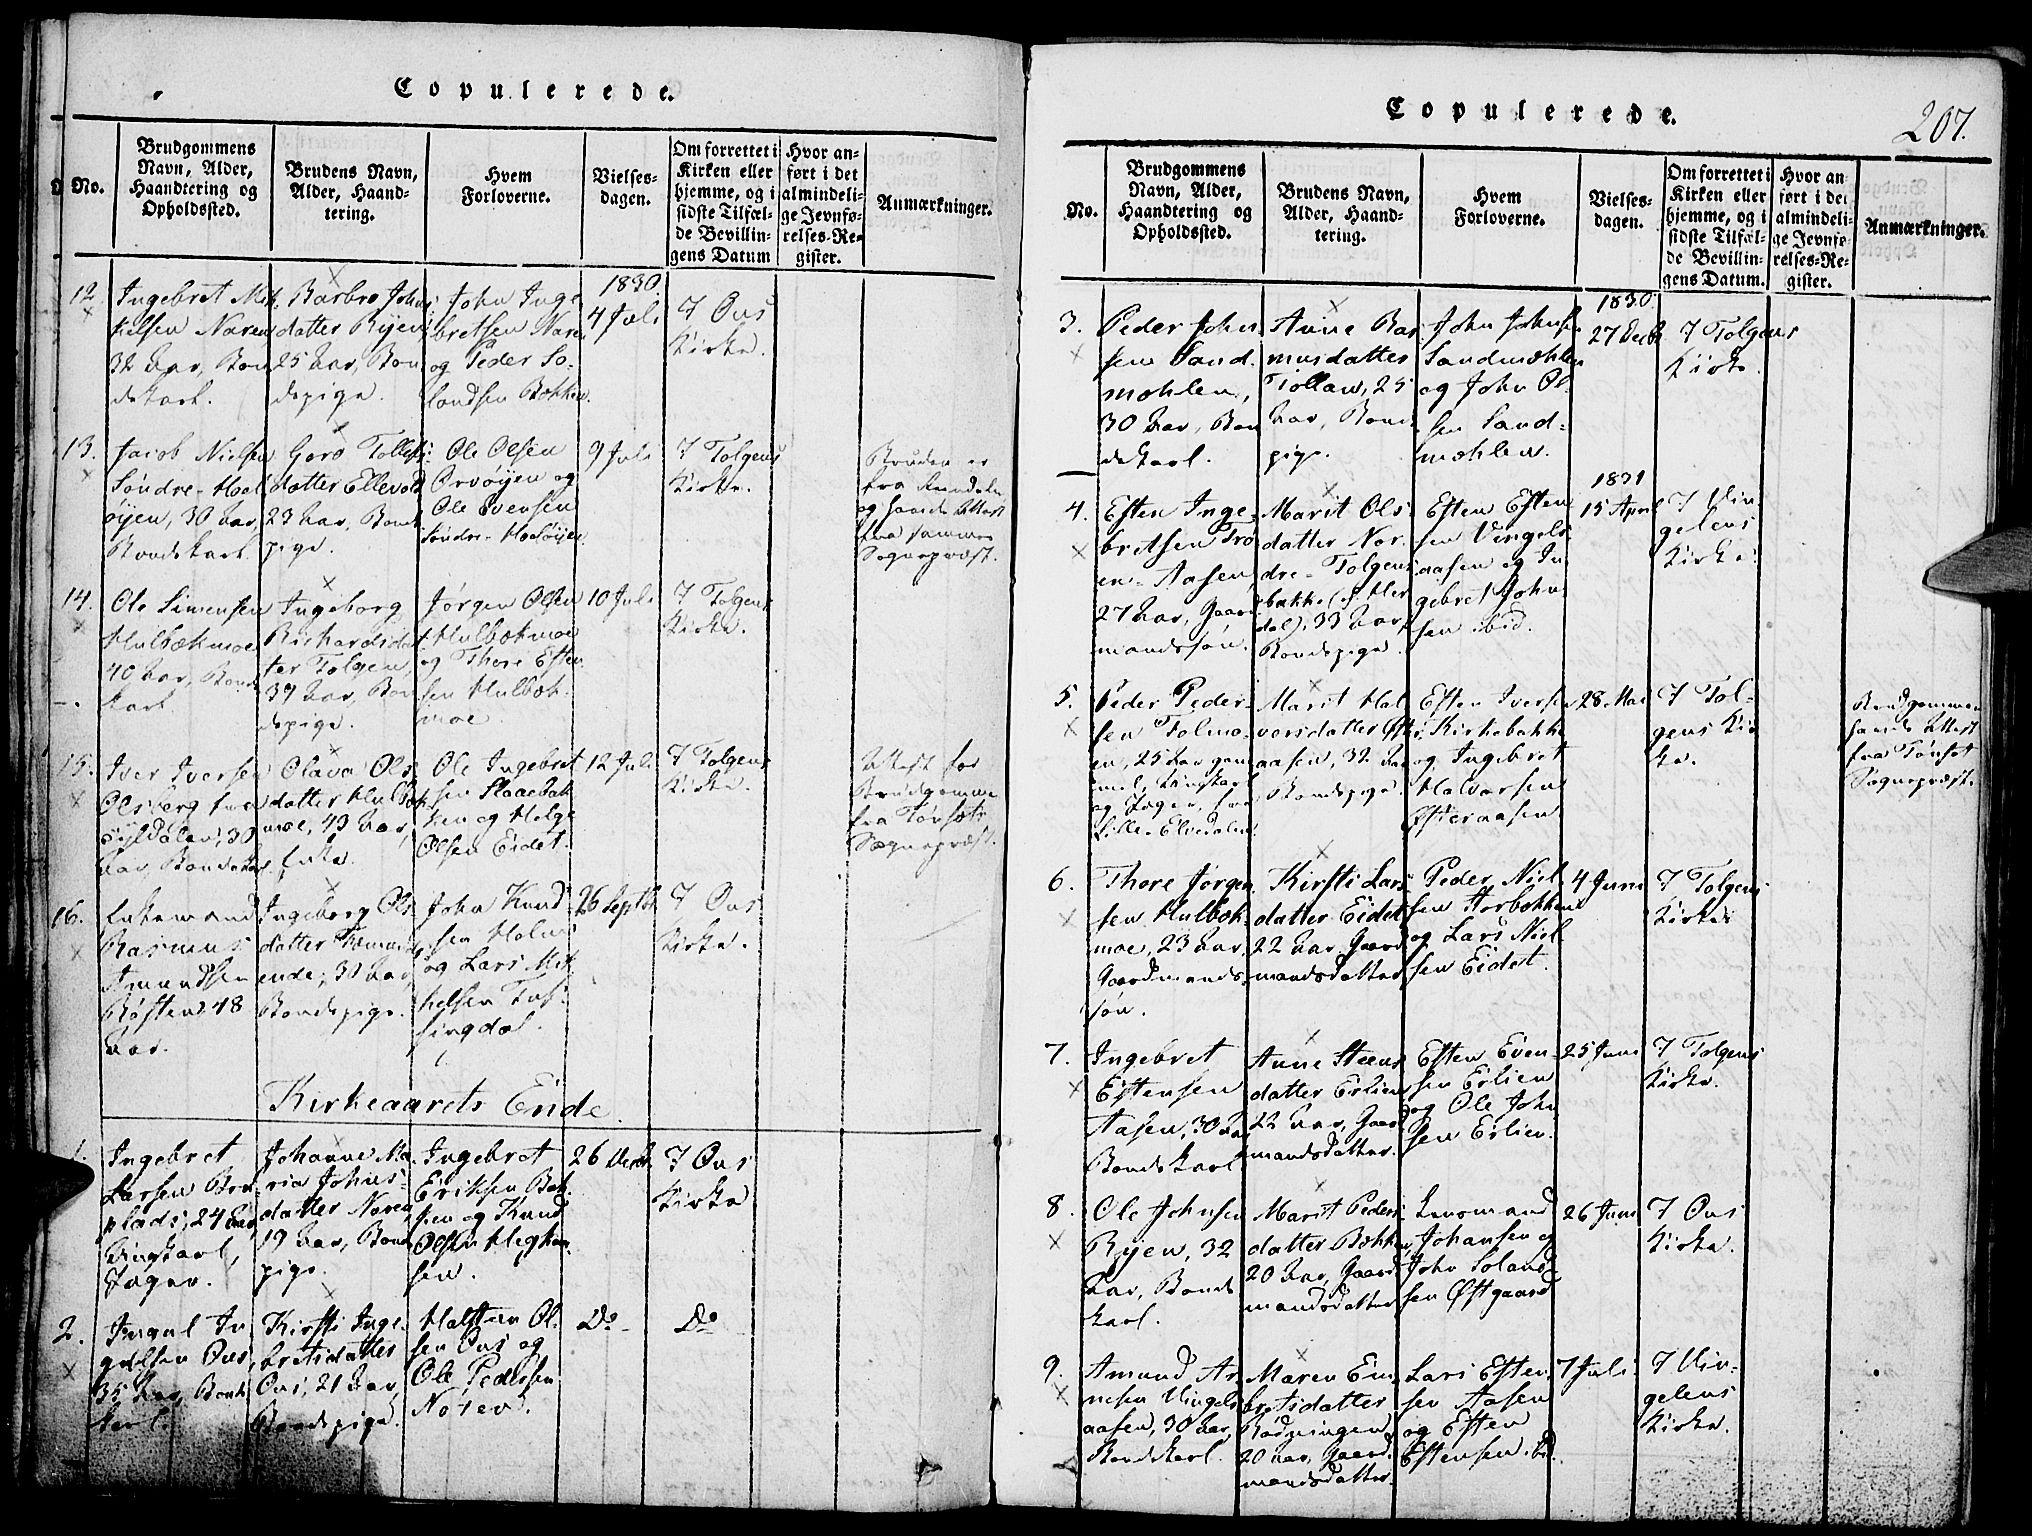 Copulerede.
No.
Brudgommens
Navn, Alder,
Haandtering og
Opholdssted.
Brudens Navn,
Alder, Haand-
tering.
Hvem
Forloverne.
Vielses-
dagen.
Om forrettet i
Kirken eller
hjemme, og i
sidste Tilfæl-
de Bevillin-
gens Datum
Hvor an-
ført i det
almindeli-
ge Jevnfø-
relses-Re-
gister.
Anmærkninger.
12.
Ingebret Mik-
kelsen Noren
32 Aar, Bon
dekarl.
Barbro Johns
datter Ryen,
25 Aar, Bon
depige.
John Inge
bretsen Noren
og Peder So-
landsen Bekken.
1830
4 Juli
I Ous
Kirke.
13.
Jacob Nielsen
Søndre-Hoel
øyen, 30 Aar,
Bondekarl.
Goro Tollefs
datter Ellevold
23 Aar, Bonde
pige.
Ole Olsen
Orvøyen og
Ole Svensen
Søndre-Hoeløyen.
9 Juli
I Tolgens
Kirke.
Bruden er
fra
og havde Attest
fra sammes
Sognepræst.
14.
Ole Simensen
Hulbækmoe
40 Aar, Bonde
karl.
Ingeborg
Richardsdat
ter Tolgen,
39 Aar, Bon
depige.
Jørgen Olsen
Hulbækmoe
og Thore Esten
sen Hulbæk-
moe.
10 Juli
I Tolgens
Kirke.
15.
Iver Iversen
Olsberg fra
Tyldalen, 30
Aar, Bondekarl.
Olava Ols
datter Hulbæk
moe, 43 Aar,
Enke.
Ole Ingebret
sen Flaaebak
ken og Helge
Olsen Eidet.
12 Juli
I Tolgens
Kirke.
Attest for
Brudgommen
fra Tønsets
Sognepræst.
16.
Enkemand
Rasmus
Amundsen
Røsten, 48
Aar.
Ingeborg Ols
datter Fæmunds
ende, 31 Aar,
Bondepige.
John Knud
sen Holm
og Lars Mik
kelsen Tuf
singdal.
26 Septbr
I Ous
Kirke.
Kirkeaarets Ende.
1.
Ingebret
Larsen Bræ
plads, 24 Aar,
Ungkarl,
Jæger.
Johanne Ma
ria Johns-
datter Noren,
19 Aar, Bonde
pige.
Ingebret
Eriksen Bek-
ken og Knud
Olsen Hegkun
sen.
26 Decbr
I Ous
Kirke
2.
Ingul In
gulsen Ous,
35 Aar, Bonde
karl.
Kirsti Inge-
bretsdatter
Ous, 21 Aar,
Bondepige.
Halsten Ol-
sen Ous og
Ole Pedersen
Noren.
Do
Do
Copulerede.
207.
No.
Brudgommens
Navn, Alder,
Haandtering og
Opholdssted.
Brudens Navn,
Alder, Haand-
tering.
Hvem
Forloverne.
Vielses-
dagen.
Om forrettet i
Kirken eller
hjemme, og i
sidste Tilfæl-
de Bevillin-
gens Datum.
Hvor an-
ført i det
almindeli-
ge Jevnfø-
relses-Re-
gister.
Anmærkninger.
3.
Peder John
sen Sand-
mæhlen,
30 Aar, Bon
dekarl.
Anne Ras
musdatter
Tollan, 25
Aar, Bonde
pige.
John Johnsen
Sandmæhlen
og John Ol-
sen Sand-
mæhlen.
1830
27 Decbr
I Tolgens
Kirke.
4.
Esten Inge-
bretsen Tro
en-Aasen
27 Aar, Gaard
mandssøn.
Marit Ols
datter Nor-
dre-Tolgens
bakke (f. Her
dal), 33 Aar,
Bondepige.
Esten Esten
sen Vingels
aasen og In
gebret John
sen ibid.
1831
15 April
I Vin
gelens
Kirke.
5.
Peder Peder-
sen Tolmo-
en, 25 Aar gam
mel, Ungkarl
og Jæger, fra
Lille-Elvedalen.
Marit Hal
vorsdatter Øster
aasen, 32 Aar
Bondepige.
Esten Iversen
Kirkebakke
og Ingebret
Halvorsen
Østeraasen
28 Mai
I Tol-
gens Kir
ke.
Brudgommen
havde Attest
fra Tønset
Sognepræst.
6.
Thore Jørgen
sen Hulbæk-
moe, 23 Aar,
Gaardmands
søn.
Kirsti Lars
datter Eidet
22 Aar, Gaard
mandsdatter
Peder Niel
sen Storbækken
og Lars Niel
sen Eidet.
4 Juni
I Tolgens
Kirke
7.
Ingebret
Estensen
Aasen, 30 Aar,
Bondekarl
Anne Steens
datter Erlien
22 Aar, Gaard
mandsdatter.
Esten Even-
sen Erlien
og Ole John
sen Erlien.
25 Juni
I Tolgens
Kirke.
8.
Ole Johnsen
Ryen, 32
Aar, Bonde
karl.
Marit Peders
datter Bekken,
20 Aar, Gaard
mandsdatter
Lensmand
Johansen og
John Soland-
sen Østgaard
26 Juni
I Ous
Kirke.
9.
Amund Ar-
nesen Vingels
aasen, 30 Aar,
Bondekarl.
Maren Em-
bretsdatter
Rødningen,
20 Aar, Gaard
mandsdatter.
Lars Esten-
sen Aasen
og Esten
Estensen ibid.
7 Juli
I Vin-
gelens
Kirke.